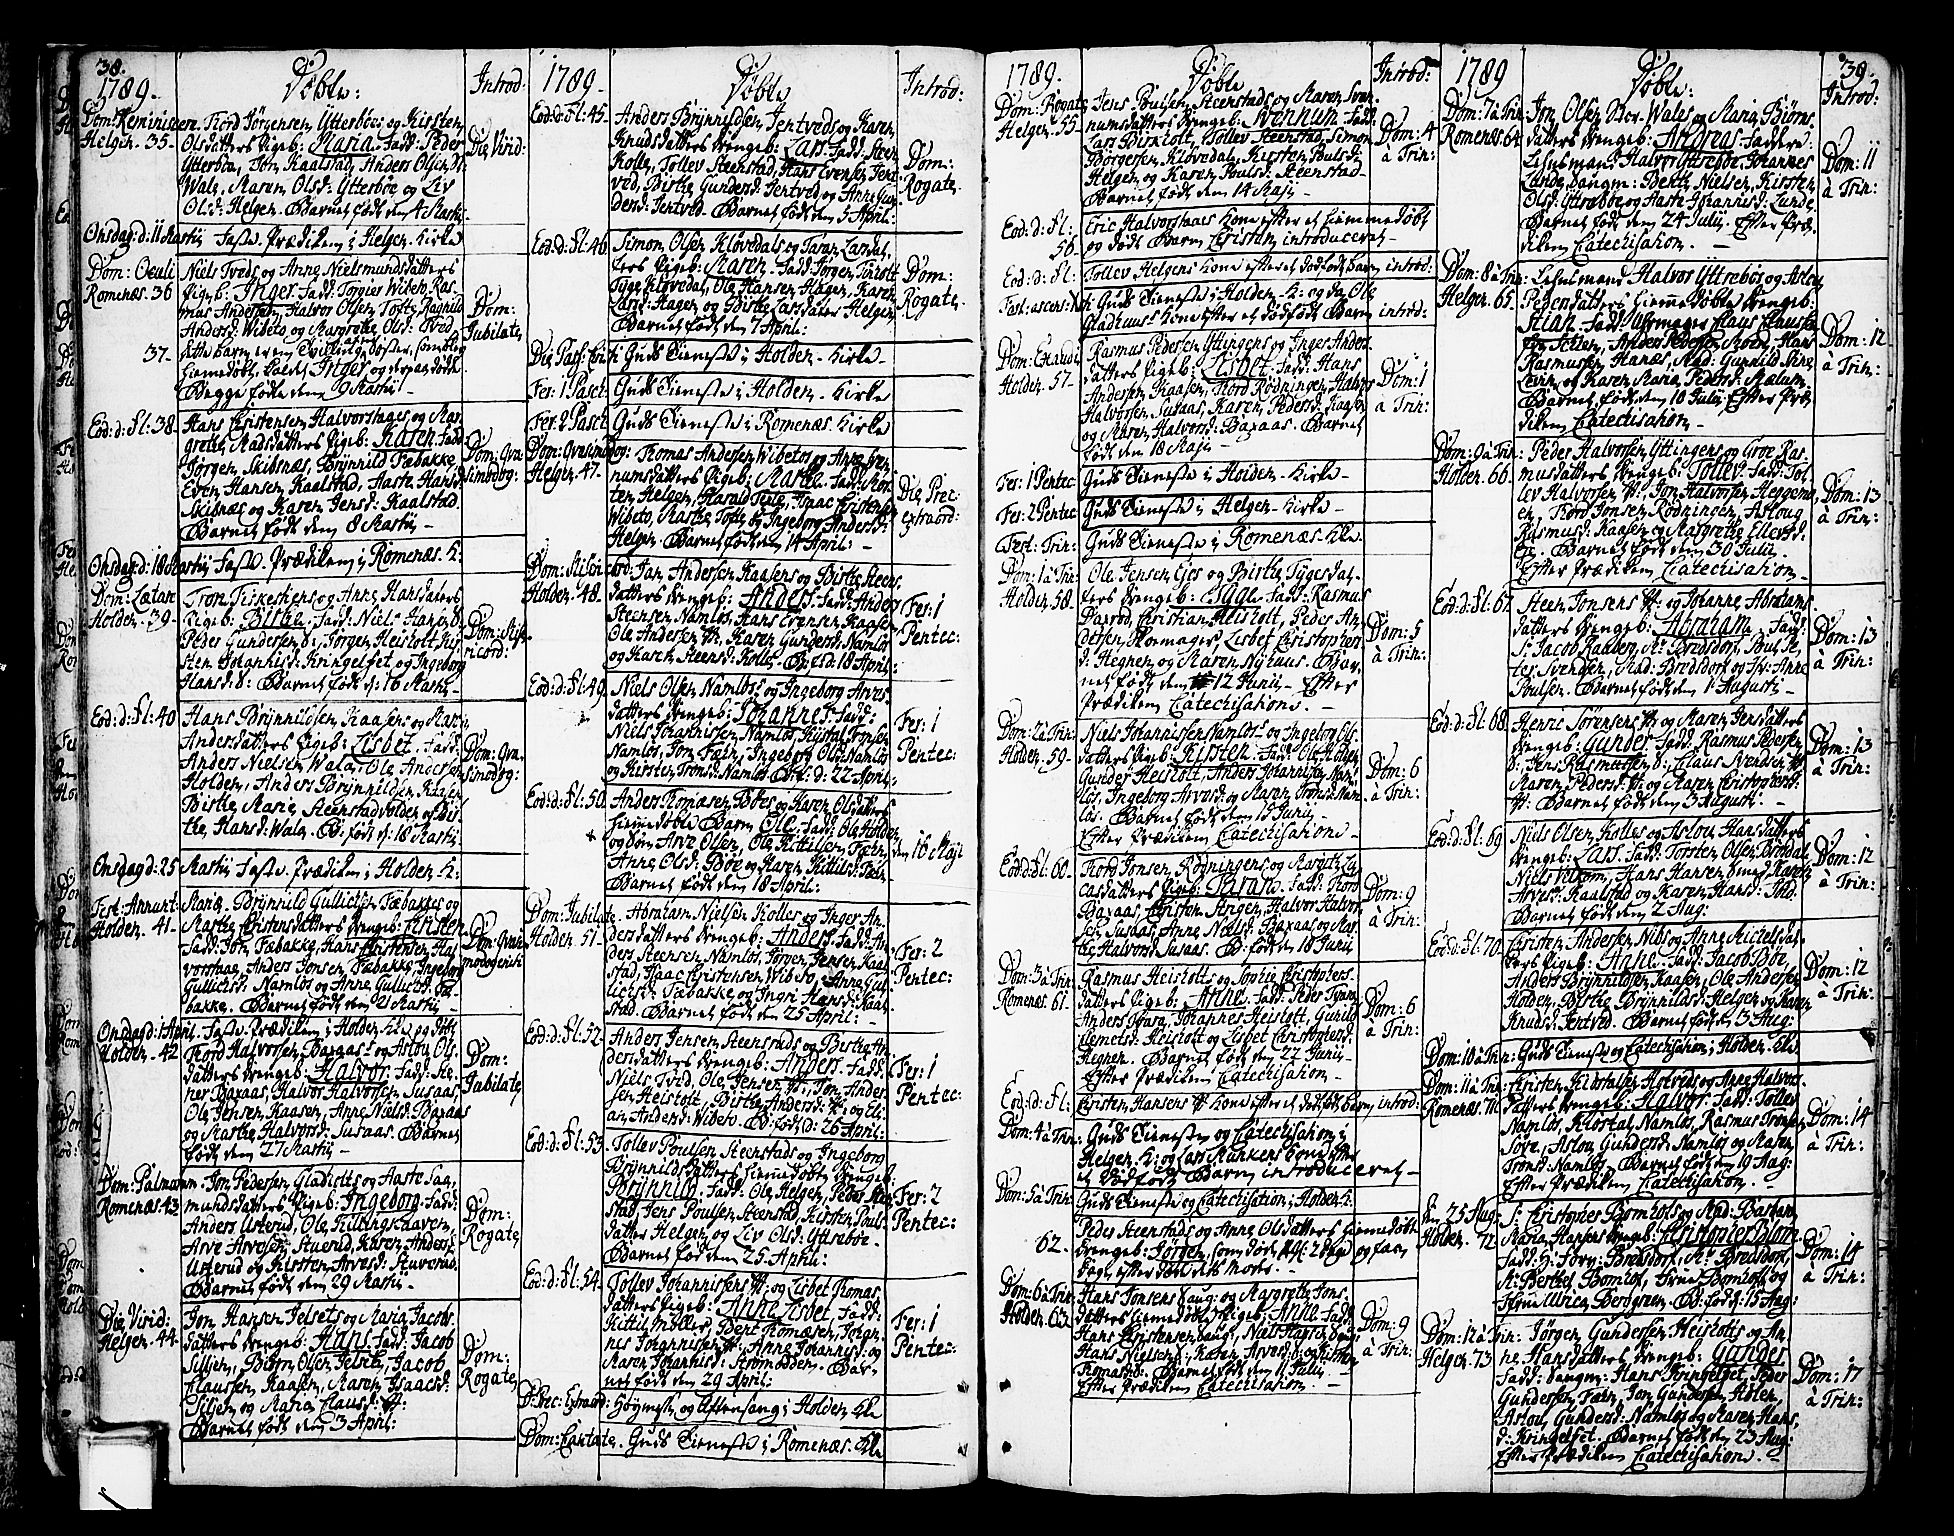 38.
1789.
Döbte:
Introd:
Dom: Reminiscere.
Helgen. 35.
Tord Jörgensen Ytterböes og Kirsten
Olsdatters Pigeb: Maria. Fadd: Peder
Ytterböe, Jon Kaalstad, Anders Olsen
Wala, Maren Olsd: Ytterböe og Liv
Olsd: Helgen. Barnet født den 4 Martij
Die Virid:
Onsdag d: 11 Martij Faste Prædiken i Helgen Kirke
Dom: Oculi
Romenæs. 36
Niels Tveds og Anne Nielsmundsdatters
Pigeb: Inger. Fadd: Torgies Wibeto, Ras-
mus Andersen, Halvor Olsen Tofte, Ragnild
Andersd: Wibeto og Margrethe Olsd: Tved.
Dom:
Jubilate
37.
hiemedøbt, kaldet Inger og
Begge födte den 9 Martij
Eod: d: fl: 38.
Hans Christensen Halvorshages og Mar-
grethe Madsdatters Pigeb: Karen. Fadd:
Jörgen Skibsnæs, Brÿnnild Fæbakke,
Even Hansen Kaalstad, Haste Hansd:
Skibsnæs og Karen Jensd: Kaalstad
Barnet født den 8 Martij
Dom: Qva-
simodog:
Onsdag d: 18 Martij Faste Prædiken i Romenæs K:
Dom: Lætare
Holden. 39.
Pigeb: Birthe. Fadd: Niels Hansen
Peder Gundersen, Jörgen Heisholt, Kir-
sten Johannisd: Kringelfet og Ingeborg
Hansd: Barnet født d: 16 Martij
Dom: Mise-
ricord:
Eod: d: fl: 40
Hans Brÿnnildsen Kaasens og Maria
Andersdatters Pigeb: Lisbet. Fadd:
Anders Nielsen Wala, Ole Andersen
Holden, Anders Brÿnnildsen Kaasen
Birthe Marie Steenstadvolden og Bir-
the Hansd: Wala. B: født d: 18 Martij
Dom: Qva-
simodog:
Onsdag d: 25 Martij Faste Prædiken i Holden K:
Fest: Annunt:
Holden. 41.
Mariæ. Brÿnnild Gullichsen Fæbakkes og
Marthe Christensdatters Drengeb: Christen
Fadd: Jon Fæbakke, Hans Christensen Hal-
vorshaug, Anders Jonsen Fæbakke, Ingeborg
Gullichsd: Namlos og Anne Gullichsd: Fæ-
bakke. Barnet født den 21 Martij
Dom: Qvasi-
modogeniti
Onsdag d: 1 April. Faste Prædiken i Holden K:
Holden. 42
Tord Halvorsen Baxaas og Aslou Ols-
datters Drengeb: Halvor. Fadd:
Baxaas, Halvor Halvorsen Susaas,
Ole Jensen Kaasen, Anne Nielsd: Baxaas
og Marthe Halvorsd: Susaas. Barnet
født den 27 Martij
Dom:
Jubilate
Dom: Palmarum
Romenæs. 43
Jon Pedersen Gladholts og Aaste Saa-
mundsdatters Pigeb: Ingeborg. Fadd:
Anders Usterud, Ole Killingshaven,
Arve Arvesen Stuverud, Karen Andersd:
Usterud og Kirsten Arvesd: Stuverud.
Barnet født den 29 Martij
Dom:
Rogate
Die Virid:
Helgen. 44.
Jon Hansen Jelsets og Maria Jacobs-
datters Drengeb: Hans. Fadd: Jacob
Siljen, Biörn Olsen Jelset, Jacob
Claussen Kaasen, Maren Isaacsd:
Siljen og Maria Clausd:
Barnet født den 3 April:
Dom:
Rogate
1789.
Döbte
Introd:
Eod: d: fl: 45.
Anders Brÿnnildsen Jentveds og Karen
Knudsdatters Drengeb: Lars. Fadd: Steen
Kolle, Tollev Steenstad, Hans Evensen Jent-
ved, Birthe Gundersd: Jentved og Anne Gun-
dersd: Jentved. Barnet født den 5 April:
Dom:
Rogate
Eod: d: fl: 46
Simon Olsen Klövedals og Taran Larsdat-
ters Pigeb: Maren. Fadd: Jörgen
Tÿge Klövedal, Ole Hansen Hagen, Karen
Larsd: Hagen og Birthe Larsdatter Helgen
Barnet født den 7 April:
Dom:
Rogate
Guds Tieneste i Holden Kirke
Fer: 1 Pasch:
Guds Tieneste i Holden Kirke
Fer: 2 Pasch
Guds Tieneste i Romenæs. Kirke
Dom: Qvasimodog:
Helgen 47.
Thomas Andersen Wibetos og Anne Sven-
numsdatters Pigeb: Marthe. Fadd: Mor-
ten Helgen, Harald Texte, Isaac Christensen
Wibeto, Marthe Tofte og Ingeborg Andersd:
Helgen. Barnet født den 14 April:
Die Prec:
extraord:
Dom: Misericord:
Holden 48.
Jan Andersen Kaasens og Birthe Steens-
datters Drengeb: Anders. Fadd: Anders
Steensen Namlos, Hans Evensen Kaasen
Ole Andersen, Karen Gundersd: Namlos
og Karen Steensd: Kolle. B: født d: 18 April:
Fer: 1
Pentec:
Eod: d: fl: 49
Niels Olsen Namlos og Ingeborg Arves-
datters Drengeb: Johannes. Fadd:
Niels Johannissen Namlos, Kirstal Tronsen
Namlos, Jon Færn, Ingeborg Olsd: Namlos
og Kirsten Tronsd: Namlos. B: f: d: 22 April:
Fer: 1
Pentec:
Eod: d: fl: 50.
Anders Thomæsen Böes og Karen Olsdatters
hiemmedøbte Barn Ole. Fadd: Ole Holden
og Arve Olsen, Ole Kittilsen Færn,
Anne Olsd: Böe og Karen Kittilsd: Færn
Barnet født den 18 April:
den 16 Maji
Dom: Jubilate
Holden. 51.
Abraham Nielsen Kolles og Inger An-
dersdatters Drengeb: Anders. Fadd: An-
ders Steensen Namlos, Jörgen Jensen Kaal-
stad, Isaac Christensen Wibeto, Anne Gul-
lichsd: Fæbakke og Ingri Hansd: Kaal-
stad. Barnet født den 25 April:
Fer: 2
Pentec:
Eod: d: fl: 52.
Anders Jensen Steenstads og Birthe An-
dersdatters Drengeb: Anders. Fadd:
Niels Tved, Ole Jensen, Jon Ander-
sen Heisholt, Birthe Andersd: og El-
en Andersd: Wibeto. B: født d: 26 April:
Fer: 1
Pentec:
Eod: d: fl: 53.
Tollev Poulsen Steenstads og Ingeborg
Brÿnnildsdatters hiemmedøbte Drengeb:
Brÿnnild. Fadd: Ole Helgen, Peder Steen-
stad, Jens Poulsen Steenstad, Kirsten Pouls-
datter Helgen og Liv Olsd: Ytterböe.
Barnet født den 25 April:
Fer: 2
Pentec:
Eod: d: fl: 54.
Tollev Johannissens og Lisbet Thomas-
datters Pigeb: Anne Lisbet. Fadd:
Kittil Möller, Bent Thomæsen, Johan-
nis Johannissen, Anne Johannisd: og
Maren Johannisd: Strömodden. Bar-
net født den 29 April:
Fer: 1
Pentec:
D: Prec: Extraord:
Höÿmesse og Aftensang i Holden Kke
Dom: Cantate.
Guds Tieneste i Romenæs. Kke
1789.
Döbte
Introd:
Dom: Rogate
Helgen. 55.
Jens Poulsen Steenstads og Maren Sven-
numsdatters Drengeb: Svennum. Fadd:
Lars Dirholt, Tollev Steenstad, Simon
Börgesen Klövedal, Kirsten Poulsd:
Helgen og Karen Poulsd: Steenstad
Barnet født den 14 Maji
Dom: 4
à Trin:
Eod: d: fl:
56.
Eric Halvorshaas Kone efter et hiemmedøbt
og dødt Barn Christen introduceret
Eod: d: fl:
Tollev Helgens Kone efter et dødfødt barn introd:
Fest: ascens:
Guds Tieneste i Holden K: og da Ole
Gladhuus Kone efter et dødfødt Barn introd:
Dom: Exaudi
Holden. 57.
Rasmus Pedersen Ÿttingens og Inger Anders-
datters Pigeb: Lisbet. Fadd: Hans
Andersen Kaasen, Tord Rödningen, Halvor
Halvorsen Susaas, Karen Pedersd: Kaasen
og Maren Halvorsd: Baxaas. Barnet
født den 18 Maji
Dom: 1
à Trin:
Fer: 1 Pentec
Guds Tieneste i Holden Kirke
Fer: 2 Pentec
Guds Tieneste i Helgen Kirke
Fest: Trin:
Guds Tieneste i Romenæs. Kke
Dom: 1 à Trin:
Holden. 58.
Ole Jensen Eies og Birthe Tÿgesdat-
ters Drengeb: Eÿgel. Fadd: Rasmus
Christian Heisholt, Peder An-
dersen Skomager, Lisbet Christophers-
d: Heghen og Maren Nÿhuus. Bar-
net født den 12 Junij. Efter
Prædiken Catechisation.
Dom: 5
à Trin:
Dom: 2 à Trin:
Holden. 59.
Niels Johannissen Namlos og Ingeborg Ols-
datters Pigeb: Kirsten. Fadd: Ole Holden
Gunder Heisholt, Anders Johannissen Nam-
los, Ingeborg Arvesd: og Maren Tronsd: Nam-
los. Barnet født den 15 Junij
Efter Prædiken Catechisation
Dom: 6
à Trin:
Eod: d: fl: 60.
Tord Jonsen Rödningens og Margrethe Lu-
casdatters Pigeb: Taran. Fadd: Tord
Baxaas, Christen Angen, Halvor Halvor-
sen Susaas, Anne Nielsd: Baxaas og Mar-
the Halvorsd: Susaas. B: født d: 18 Junij
Dom: 9
à Trin:
Dom: 3 à Trin:
Romenæs. 61.
Rasmus Heisholts og Sophie Christophers-
datters Pigeb: Anne. Fadd: Peder
Anders, Johannes Heisholt, Gunild
Clemetsd: Heisholt og Lisbet Christophersd:
Heghen. Barnet født den 22 Junij
Efter Prædiken Catechisation
Dom: 6
à Trin:
Eod: d: fl:
Christen Hansens Kone efter et dødfødt barn introd:
Dom: 4 à Trin:
Guds Tieneste og Catechisation i
Helgen K: og Lars Munkens Kone efter
et dødfødt Barn introduceret
Dom: 5 à Trin:
Guds Tieneste og Catechisation i Holden K.
62.
Peder Steenstads og Anne Olsdatters hiemmedøbte
Drengeb: Jörgen, som døde
Dage efter
Dom: 6 à Trin:
Holden. 63.
Hans Jonsens og Margrethe Jons-
datters hiemmedøbte Pigeb: Anne. Fadd:
Hans Christensen, Niels
Hans Nielsen, Karen Arvesd: og Kirsten
Thomasd: Barnet født den 1 Julij
Efter Prædiken Catechisation.
Dom: 9
à Trin:
1789
Döbte:
39.
Introd:
Dom: 7 à Trin:
Romenæs 64
Jon Olsen Nor-Wales og Maria Biörns-
datters Drengeb: Andreas. Faddere:
Lehnsmand: Halvor Ytterböe, Johannes
Lunde, Bent Nielsen, Kirsten
Olsd: Ytterböe og Aaste Johannisd: Lunde.
Barnet født den 24 Julij. Efter Præ-
diken Catechisation.
Dom: 11
à Trin:
Dom: 8 à Trin:
Helgen. 65.
Lehnsmand Halvor Ytterböes og Aslou
Pedersdatters hiemmedøbte Drengeb:
Stian. Fadd: Uhrmager Claus Claus-
sen, Anders Pedersen Moen, Hans
Rasmussen Hanæs, Mad: Gunild Anne
Levin og Karen Maria Pedersd: Mælum
Barnet født den 10 Julij. Efter Præ-
diken Catechisation
Dom: 12
à Trin:
Dom: 9 à Trin:
Holden 66.
Peder Halvorsen Ÿttingens og Groe Ras-
musdatters Drengeb: Tollev. Fadd: Tol-
lev Halvorsen, Jon Halvorsen Heggen-
en, Tord Jonsen Rödningen, Asloug
Rasmusd: Kaasen og Margrethe Ellevsd:
Barnet født den 30 Julij.
Efter Prædiken Catechisation
Dom: 13
à Trin:
Eod: d: fl: 67.
Steen Jonsens og Johanne Abrahams-
datters Drengeb: Abraham. Fadd:
Sr: Jacob Raaberg, Mr: Bredsdorf, Poul Pe-
ter Svendsen, Mad: Bredsdorf og Jfr: Anne
Poulsen. Barnet født den 1 Augustij
Dom: 13
à Trin:
Eod: d: fl: 68.
Henric Sörensens og Maren Jensdatters
Drengeb: Gunder. Fadd: Rasmus Pedersen
Jens Rasmussen, Claus Svendsen
Maren Pedersd: og Karen Christophersd:
Barnet født den 3 Augustij
Dom: 13
à Trin:
Eod: d: fl: 69
Niels Olsen Kolles og Aslou Hansdatters
Drengeb: Lars. Fadd: Torsten Olsen Brödal,
Niels Velkom, Hans Hansen, Maren
Arvesd: Kaalstad og Karen Hansd:
Barnet født den 2 Aug:
Dom: 12
à Trin:
Eod: d: fl: 70.
Christen Andersen Nibs og Anne Michelsdat-
ters Pigeb: Anne. Fadd: Jacob Böe,
Anders Brÿnnildsen Kaasen, Ole Andersen
Holden, Birthe Brÿnnildsd: Helgen og Karen
Knudsd: Jentved. Barnet født den 3 Aug:
Dom: 12
à Trin:
Dom: 10 à Trin:
Guds Tieneste og Catechisation i Holden Kke
Dom: 11 à Trin:
Romenæs. 71
Christen Holtveds og Anne Halvors-
datters Drengeb: Halvor. Fadd: Tollev
Namlos, Klostal Namlos, Rasmus Tronsen
Tove, Aslou Gundersd: Namlos og Maren
Tronsd: Namlos. Barnet født den 19 Aug:
Efter Prædiken Catechisation
Dom: 14
à Trin:
Den 25 Aug.
Holden. 72
Sr: Christopher Bomhofs og Mad: Barbara
Maria Hansens Drengeb: Christopher Blom.
Fadd: Hr: Bredsdorf, Mr: Bredsdorf,
Mr: Berthel Bomhof, Frue Bomhof og
Frue Ulrica Berggreen. B: født d: 15 Aug:
Dom: 14
à Trin:
Dom: 12 à Trin:
Helgen. 73
Jörgen Gundersen Heisholts og An-
ne Hansdatters Drengeb: Gunder
Fadd: Hans Kringelfet, Peder
Gundersen Færn, Jon Gundersen Holen,
Aslou Gundersd: Namlos og Maren Hans-
d: Kringelfet. Barnet født den 23 Aug:
Efter Prædiken Catechisation.
Dom: 17
à Trin: